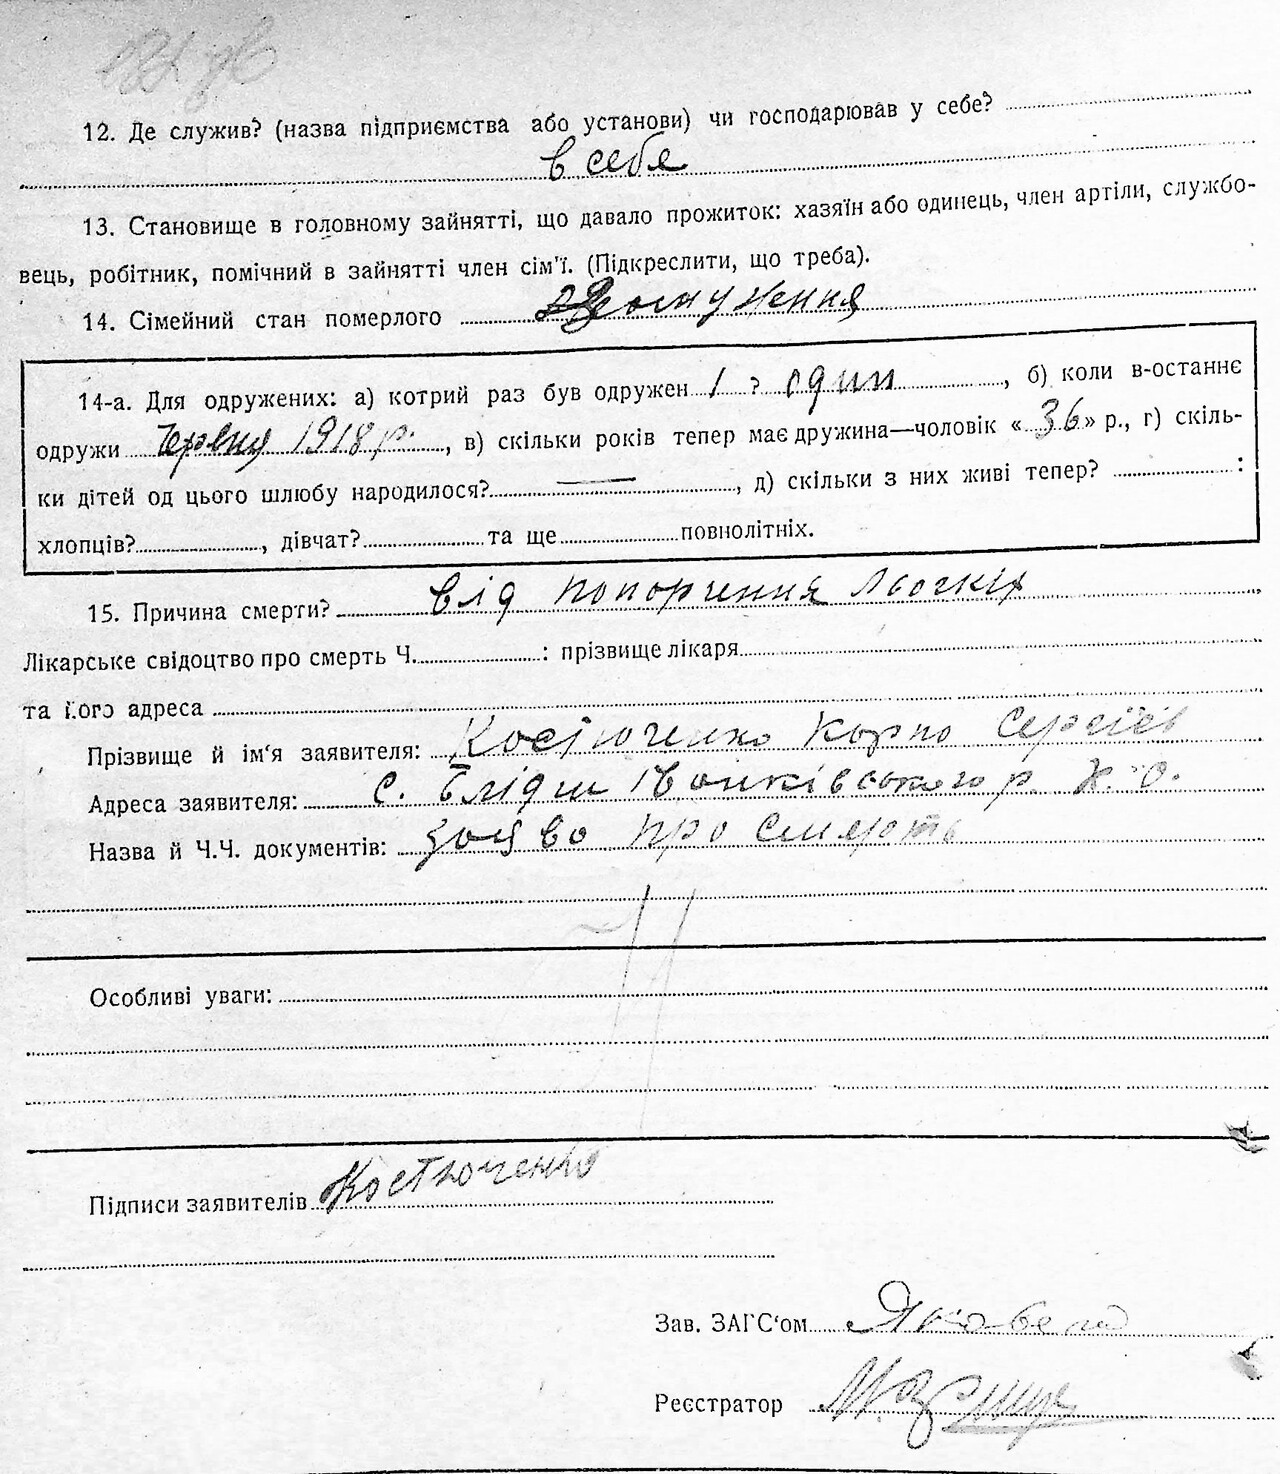 12. Де служив? (назва підприємства або установи) чи господарював у себе?
в себе
13. Становище в головному зайнятті, що давало прожиток: хазяїн або одинець, член артіли, службо-
вець, робітник, помічний в зайнятті член сім'ї. (Підкреслити, що треба).
14. Сімейний стан померлого
14-а. Для одружених: а) котрий раз був одружен 1 ? один, б) коли в-останнє
одружи Червня 1918 р., в) скільки років тепер має дружина—чоловік « 36 » р., г) скіль-
ки дітей од цього шлюбу народилося? —, д) скільки з них живі тепер? :
хлопців?, дівчат? та ще повнолітніх.
15. Причина смерти? від попорчення Льогкіх
Лікарське свідоцтво про смерть Ч. : прізвище лікаря
та його адреса
Прізвище й ім'я заявителя: Костюченко Карпо Сергіїв
Адреса заявителя: с. Блідчи Іванківського р. К. О.
Назва й Ч.Ч. документів: про смерть
Особливі уваги:
Підписи заявителів Костюченко
Зав. ЗАГС'ом
Реєстратор